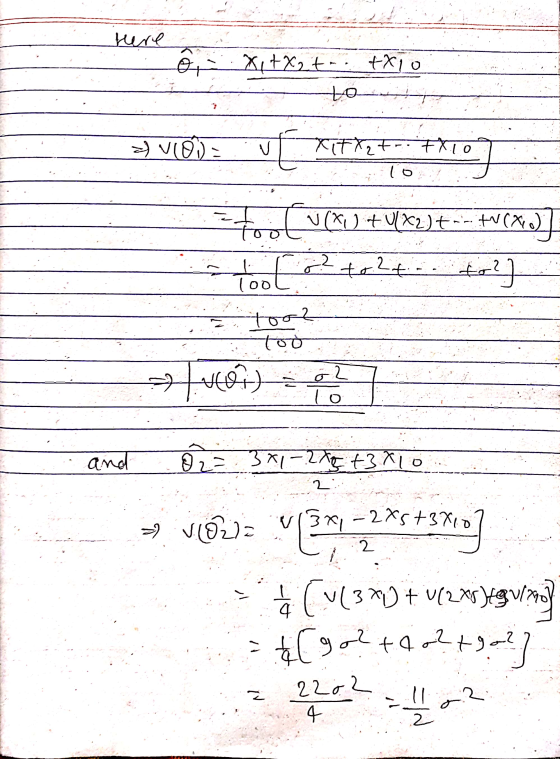 Here
θ̂₁ = x₁+x₂+-- +x10 / 10
⇒ V(θ̂₁) = V[ x₁+x₂+--+x10 / 10 ]
= 1/100 [ V(x₁) + V(x₂) + --+V(x10) ]
= 1/100 [ σ² + σ² + -- +σ² ]
= 10σ² / 100
⇒ V(θ̂₁) = σ² / 10
and θ̂₂ = 3x₁ - 2x5 + 3x10 / 2
⇒ V(θ̂₂) = V[ 3x₁ - 2x5 + 3x10 / 2 ]
= 1/4 [ V(3x₁) + V(2x5) + 9V(x10) ]
= 1/4 [ 9σ² + 4σ² + 9σ² ]
= 22σ² / 4 = 11/2 σ²